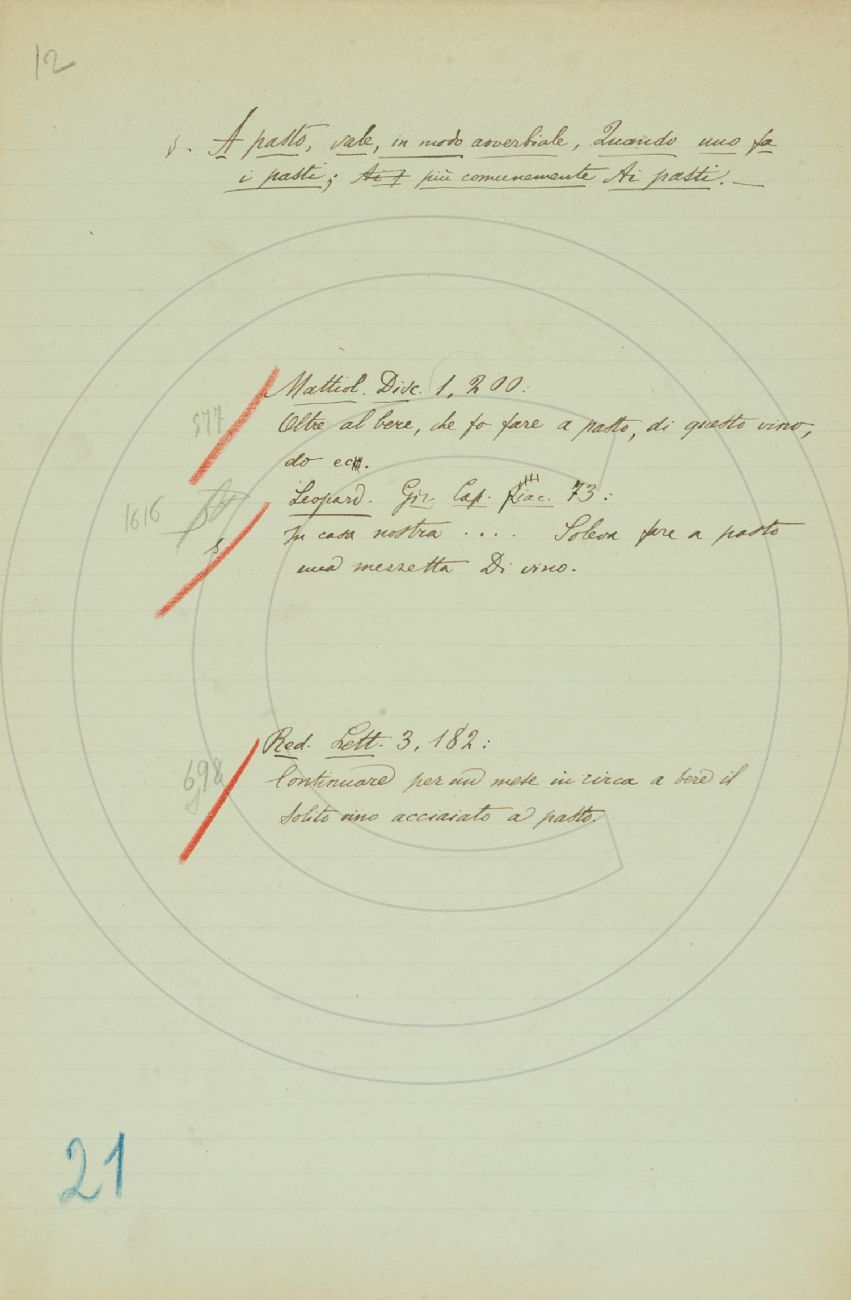 12
§. A pasto, vale, in modo avverbiale, Quando uno fa
i pasti; più comunemente Ai pasti. —
Mattiol. Disc. 1, 200:
577
Oltre al bere, che fo fare a pasto, di questo vino,
do ec.
Leopard. Cap. 73:
1616
In casa nostra .... Soleva fare a pasto
una mezzetta Di vino.
Red. Lett. 3, 182:
698
Continuare per un mese in circa a bere il
solito vino acciaiato a pasto.
21